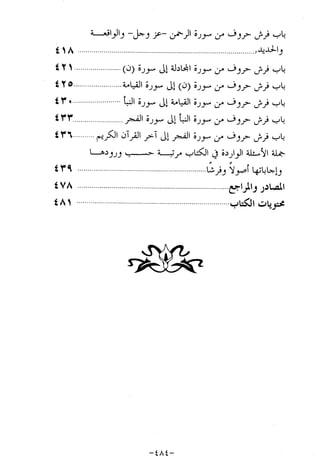 باب فرش حروف من سورة الرحمن -عز وجل- والواقعـــة
والحديد ........................................ ٤١٨
باب فرش حروف من سورة المجادلة إلى سورة (ن) ........................ ٤٢١
باب فرش حروف من سورة (ن) إلى سورة القيامة ........................ ٤٢٥
باب فرش حروف من سورة القيامة إلى سورة النبأ ........................ ٤٣٠
باب فرش حروف من سورة النبأ إلى سورة الفجر ........................ ٤٣٣
باب فرش حروف من سورة الفجر إلى آخر القرآن الكريم ................ ٤٣٦
جملة الأسئلة الواردة في الكتاب مرتبـــة حســـب ورودهـــا
وإجاباتها أصولاً وفرشًا ........................................ ٤٣٩
المصادر والمراجع ........................................ ٤٧٨
محتويات الكتاب ........................................ ٤٨١
-٤٨٤-